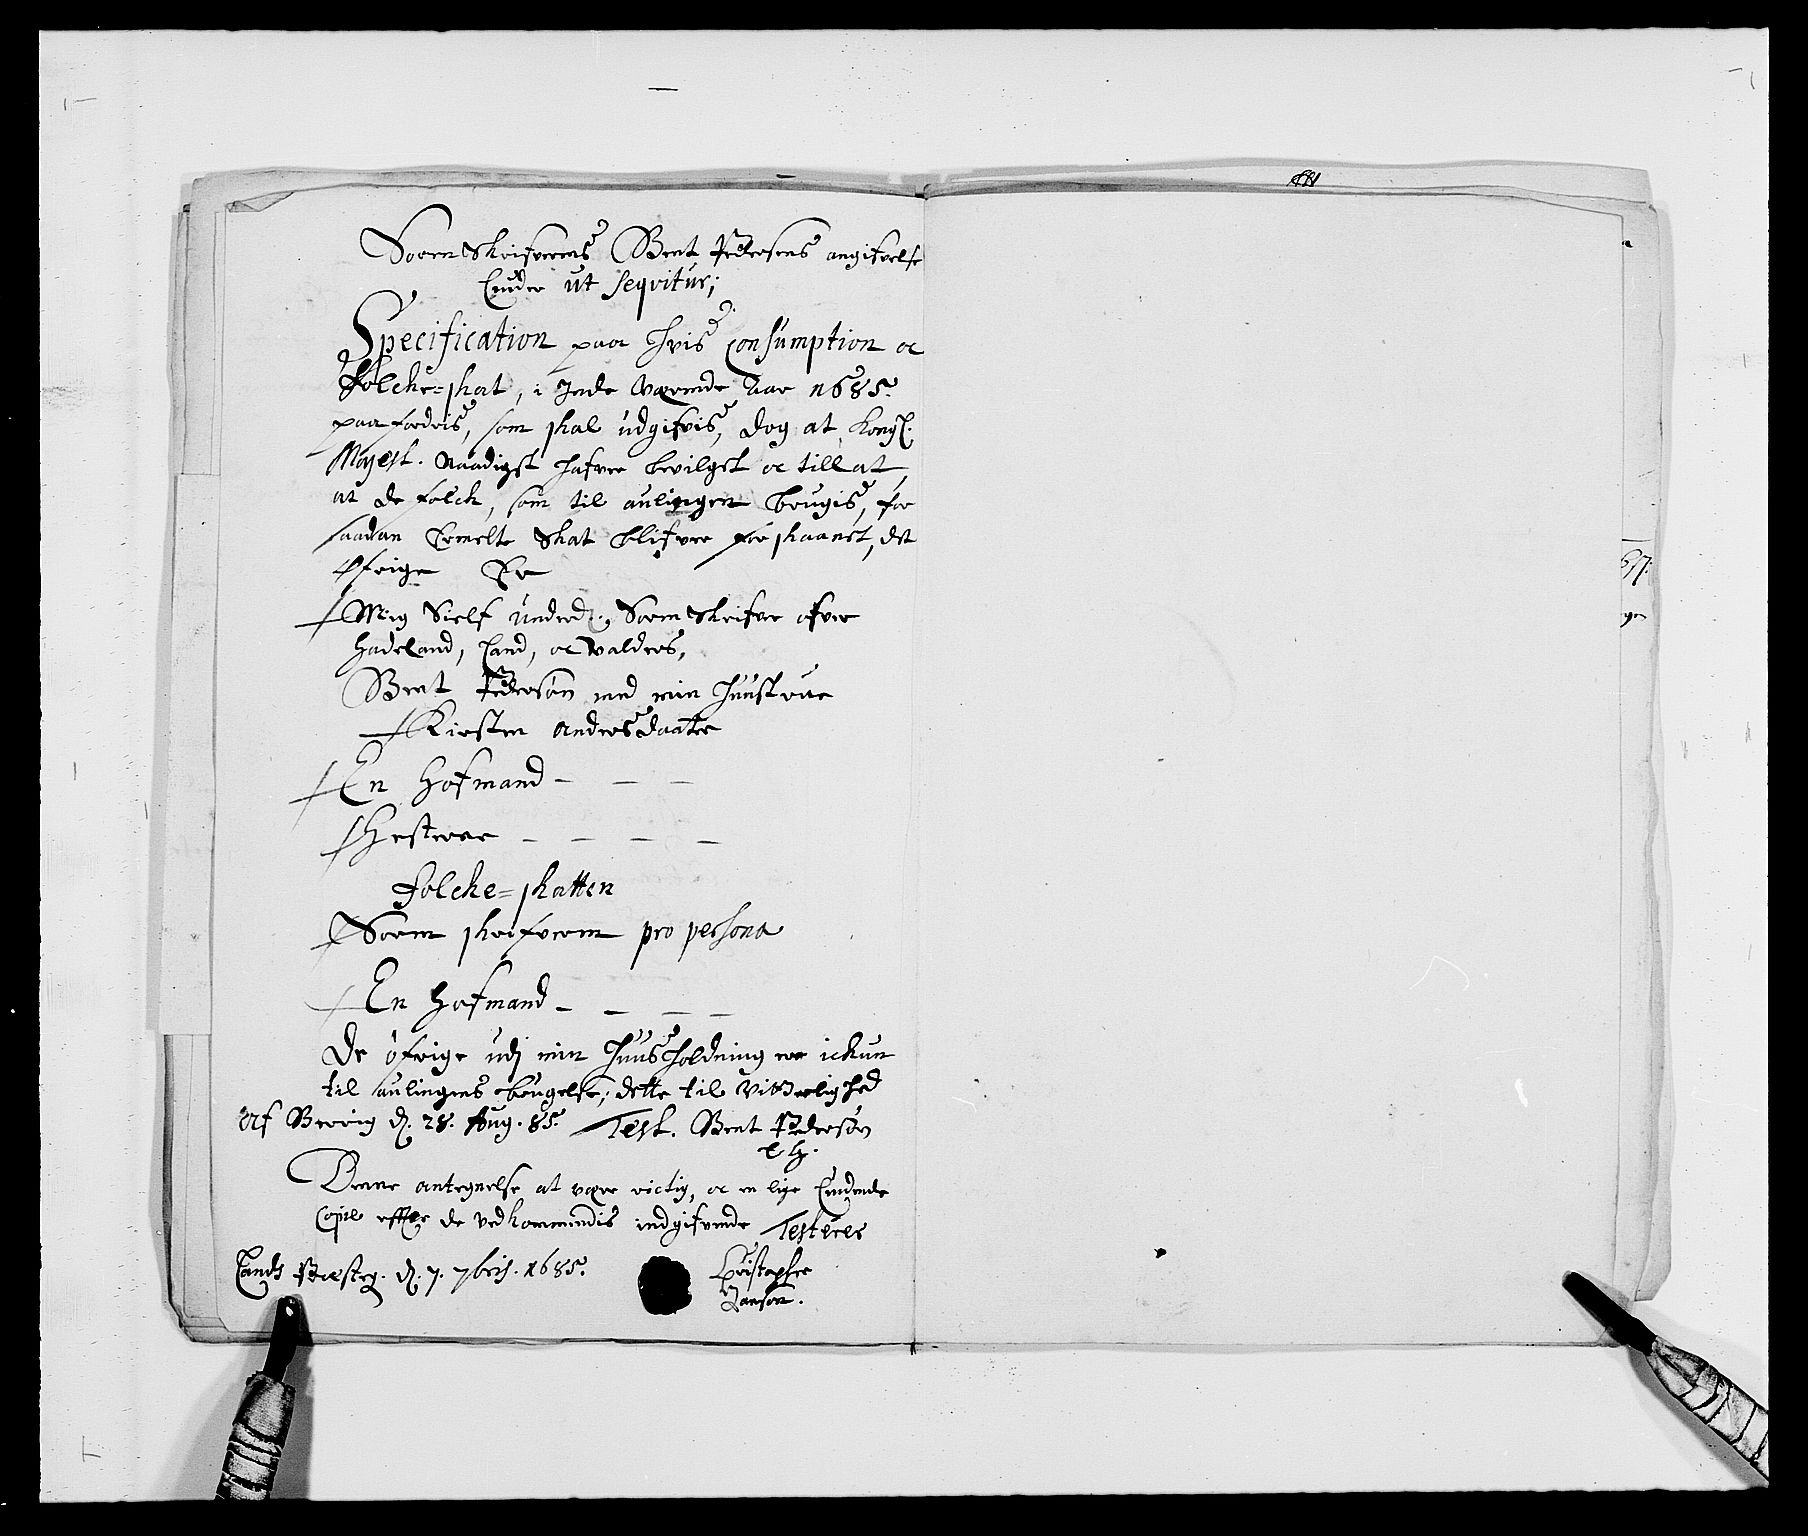 Sorenskrifverens Bent Pedersens angifvelse
Liuder ut Seqvitur;
Specification paa hvis Consumption oc
Folche-skat, i Inde værende Aar 1685.
paafordris, som skal udgifvis, dog at Kongl.
Majest. Naadigst hafver bevilget oc tillat,
at de folch, som til aulingen brugis, for
saadan bemelte Skat blifver forskaanet, det
Øfrige Er
Mig Sielf underd. Sorenskrifver ofver
Hadeland, Land, oc Valders,
Bent Pedersøn med min hustrue
Kirsten Andersdaatter
En Hofmand – – –
– – – –
Folche-skatten
Sorenskrifveren pro persona
En Hofmand – – – –
De øfrige udj min Huusholdning er ickun
til aulingens brugelse; dette til Vitterlighed
Af d. 28. Aug. 85. Test. Bent Pedersøn
Denne antegnelse at være rictig, oc en lige liudende
Copie effter de vedkommendis indgifvende Testerer
Lands Præsteg. d. 7. 7bris. 1685. Christopher
Hansøn.